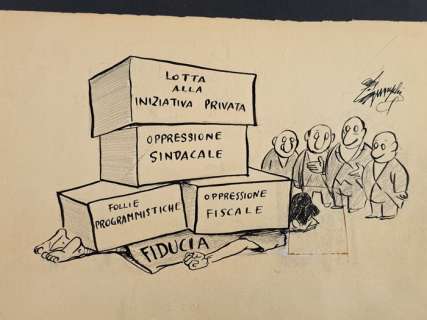 LOTTA
ALLA
INIZIATIVA PRIVATA
OPPRESSIONE
SINDACALE
FOLLIE
PROGRAMMISTICHE
OPPRESSIONE
FISCALE
FIDUCIA